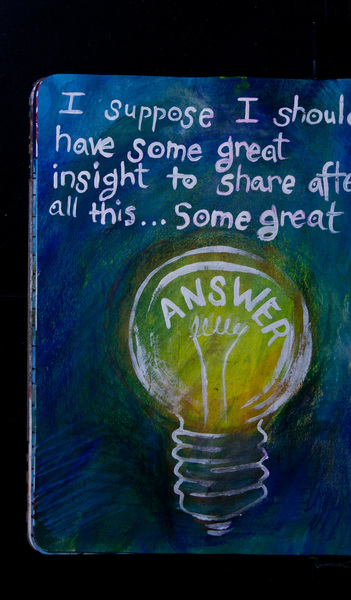 I suppose I shoul
have some great
insight to share afte
all this... Some great
ANSWER